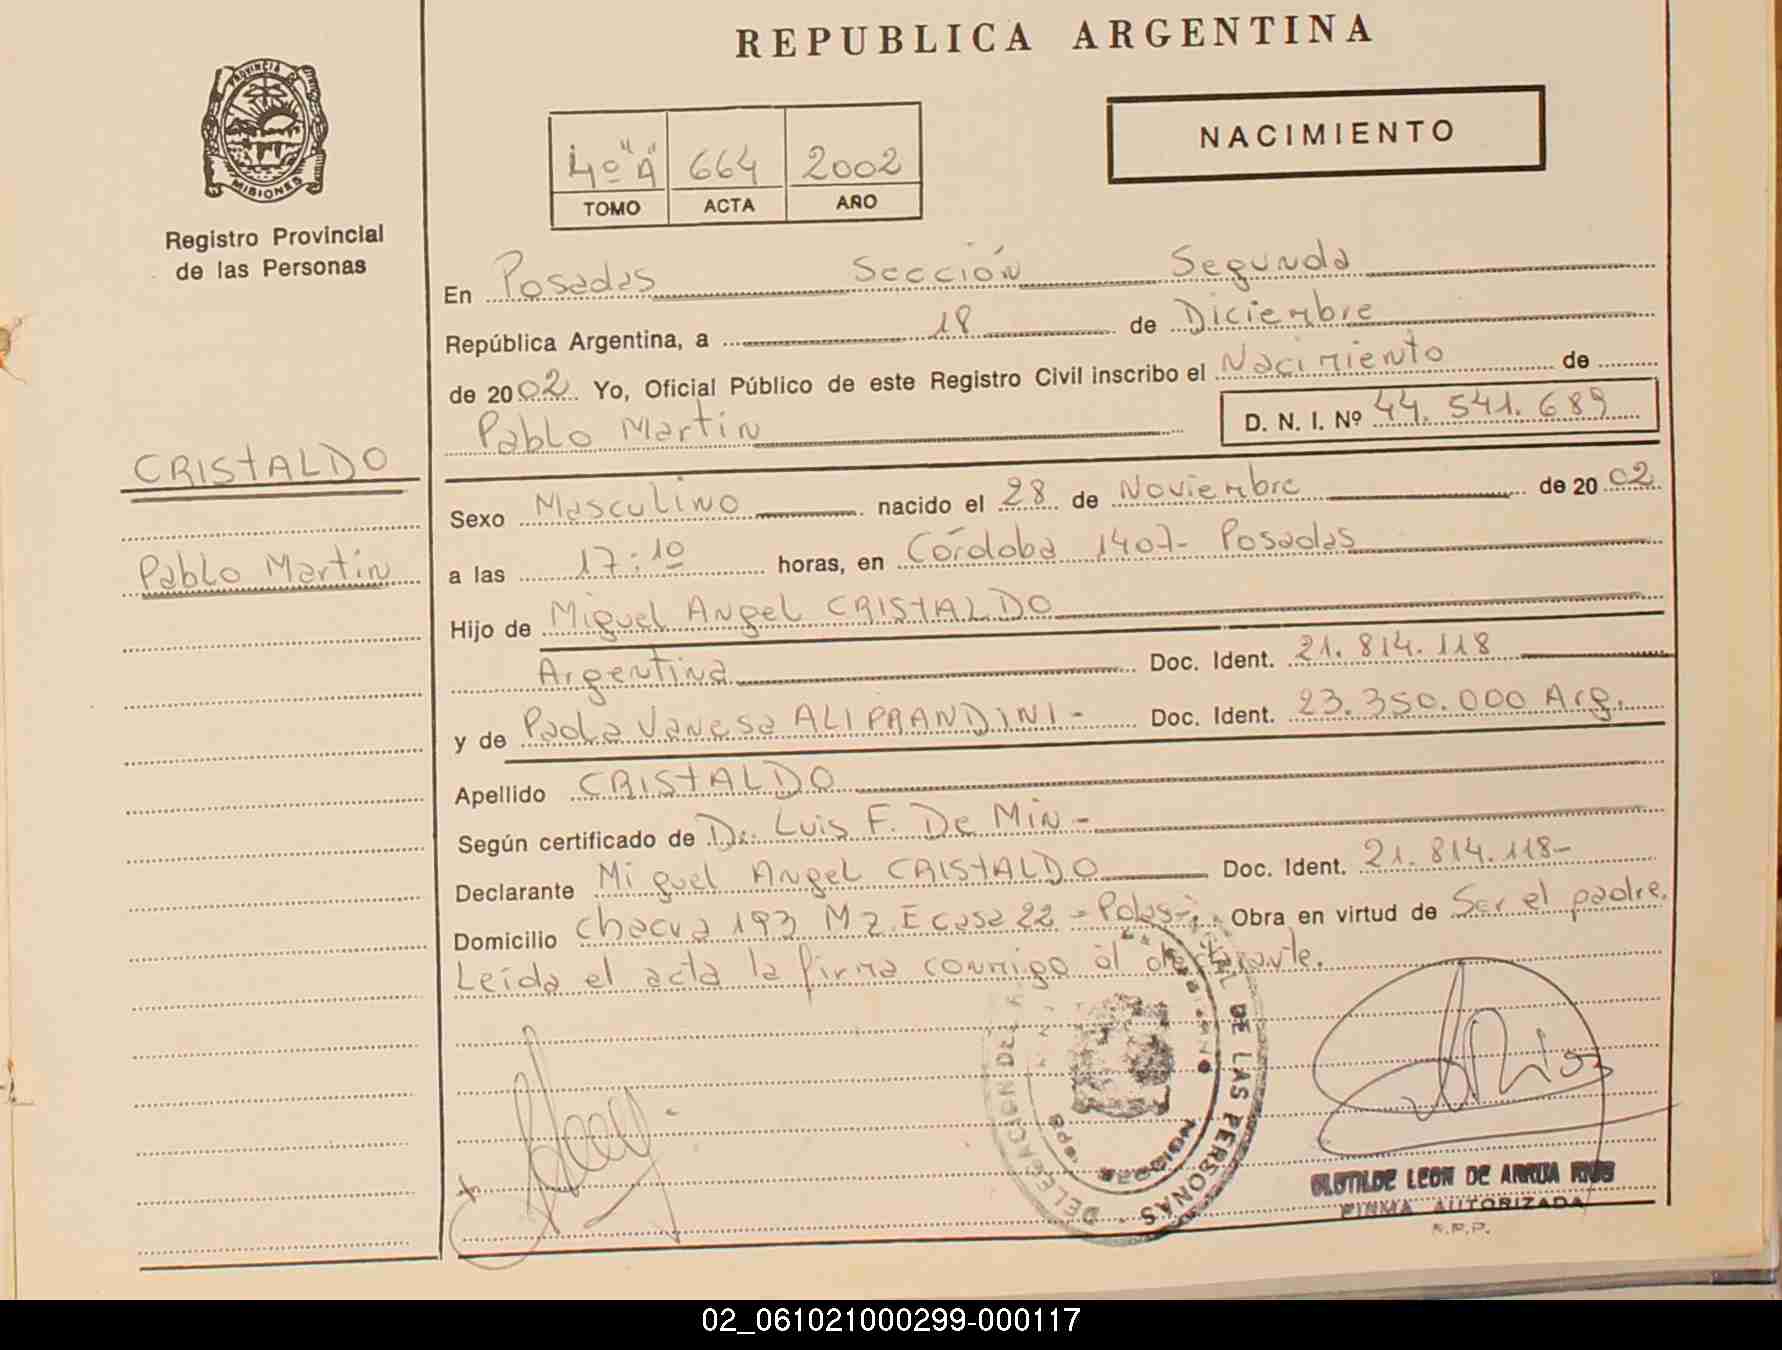 REPUBLICA ARGENTINA
PROVINCIA DE
MISIONES
Registro Provincial
de las Personas
4º "A" 664 2002
TOMO ACTA AÑO
NACIMIENTO
En Posadas Sección Segunda
República Argentina, a 18 de Diciembre
de 2002 Yo, Oficial Público de este Registro Civil inscribo el Nacimiento de
Pablo Martín D. N. I. Nº 44.541.689
CRISTALDO
Pablo Martín
Sexo Masculino nacido el 28 de Noviembre de 2002
a las 17:10 horas, en Córdoba 1407- Posadas
Hijo de Miguel Angel CRISTALDO
Argentina Doc. Ident. 21.814.118
y de Paola Vanesa ALIPRANDINI- Doc. Ident. 23.350.000 Arg.
Apellido CRISTALDO
Según certificado de Dr. Luis F. De Min-
Declarante Miguel Angel CRISTALDO Doc. Ident. 21.814.118-
Domicilio Chacra 193 Mz. E casa 22 - Obra en virtud de Ser el padre.
Leída el acta la firma conmigo el declarante.
DELEGACION DE DE LAS PERSONAS
CLOTILDE LEON DE ARRUA RIOS
FIRMA AUTORIZADA
R.P.P.
02_061021000299-000117